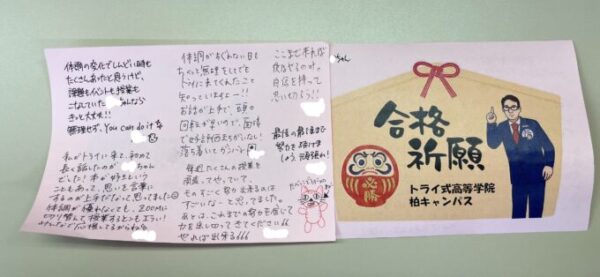 体調の変化でしんどい時も
たくさんあったと思うけど、
課題もイベントも授業も
こなしていた なら
きっと大丈夫!!
無理せず、You can do it
私がトライに来て、初めて
長く話したのが ちゃん
でした!本が好きという
こともあって、思いを言葉に
するのが上手だなって思ってました
体調が優れなくても、zoomに
切り替えて授業するところもエライ!
みんなで応援してるからね
体調がすぐれない日も
ちゃんと無理をしてでも
トライに来てくれたこと
知っていますよー!!
お話が上手で、頭の
回転が早いので、面接
でオドオドする必要もないが
落ち着いてガンバレ
毎週たくさんの授業を
頑張ってやっていて、
ものすごく努力出来るのは
すごいな~と思ってました。
あとは、これまでの努力を信じて
力を出し切ってきてください
やれば出来る
ここまで来れば
後はやるのみ。
自信を持って
思い切ろう!!
最後の最後まで
努力を続け
しよう 頑張れ!
ちゃん
合格
祈願
必勝
トライ式高等学院
柏キャンパス